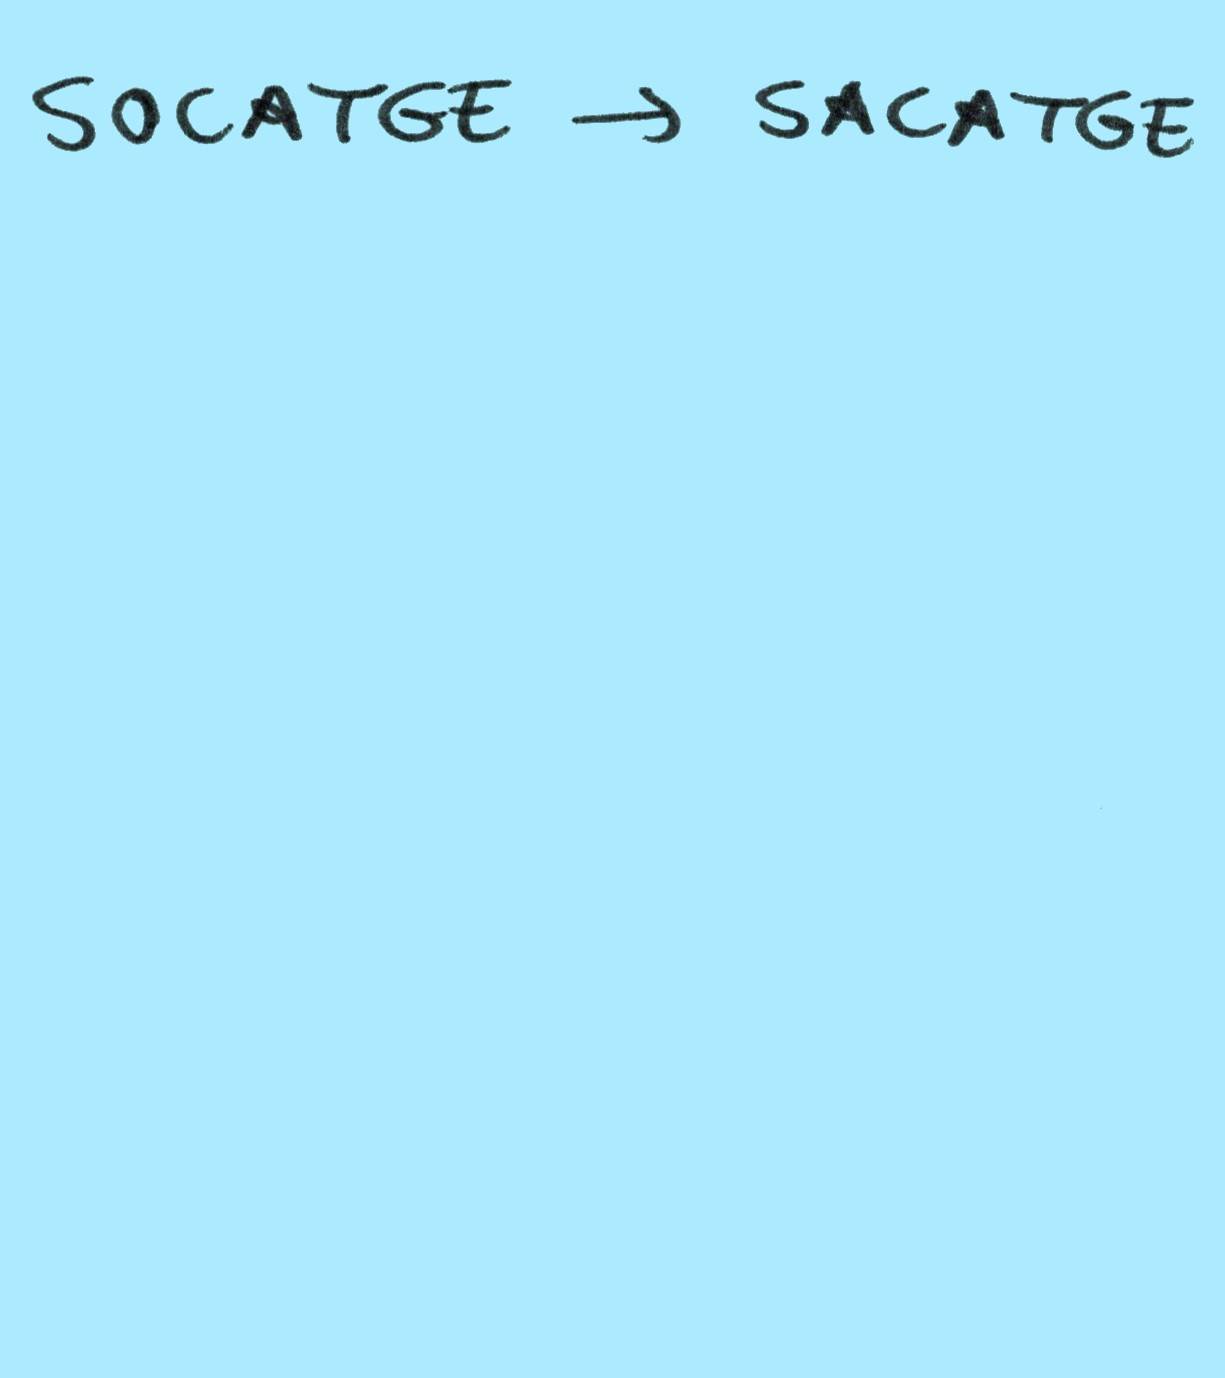 SOCATGE → SACATGE